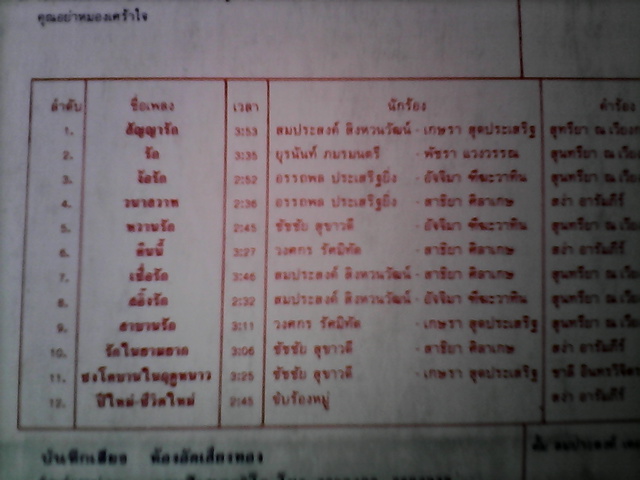 คุณอย่าหมองเศร้าใจ
ลำดับ ชื่อเพลง เวลา นักร้อง คำร้อง
1. สัญญารัก 3:53 สมประสงค์ สิงหวนวัฒน์ - เกษรา สุดประเสริฐ สุนทรียา ณ เวียง
2. รัก 3:35 ยุรนันท์ ภมรมนตรี - พัชรา แวงวรรณ สุนทรียา ณ เวีย
3. 2:52 อรรถพล ประเสริฐยิ่ง - อัจจิมา สุนทรียา ณ เวีย
4. วนาสวาท 2:36 อรรถพล ประเสริฐยิ่ง - สาธิยา ศิลาเกษ สง่า อารัมภีร์
5. หวานรัก 2:45 ชัชชัย สุขาวดี - อัจจิมา สุนทรียา ณ เวีย
6. คืนนี้ 3:27 วงศกร รัศมิทัต - สาธิยา ศิลาเกษ สง่า อารัมภีร์
7. เชื่อรัก 3:46 สมประสงค์ สิงหวนวัฒน์ - สาธิยา ศิลาเกษ สุนทรียา ณ เวีย
8. 2:32 สมประสงค์ สิงหวนวัฒน์ - อัจจิมา สุนทรียา ณ เวีย
9. สาบานรัก 3:11 วงศกร รัศมิทัต - เกษรา สุดประเสริฐ สุนทรียา ณ เวีย
10. รักในยามยาก 3:06 ชัชชัย สุขาวดี - สาธิยา ศิลาเกษ สง่า อารัมภีร์
11. ในฤดูหนาว 3:25 ชัชชัย สุขาวดี - เกษรา สุดประเสริฐ ชาลี อินทรวิจิตร
12. ปีใหม่-ชีวิตใหม่ 2:45 ขับร้องหมู่ สง่า อารัมภีร์
บันทึกเสียง ห้องอัดเสียงทอง